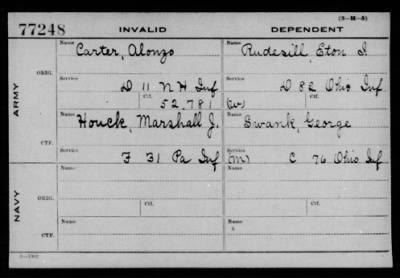 (3-M-8)
77248 INVALID DEPENDENT
Name Name
Carter, Alonzo Rudesill, Eton I.
ARMY
ORIG.
Service Service
D 11 N H Inf D 82 Ohio Inf
Ctf. Ctf.
52,781 (W)
Name Name
Houck, Marshall J. Swank, George
CTF.
Service Service
F 31 Pa Inf (M) C 76 Ohio Inf
NAVY
Name Name
ORIG.
Ctf. Ctf.
Name Name
CTF.